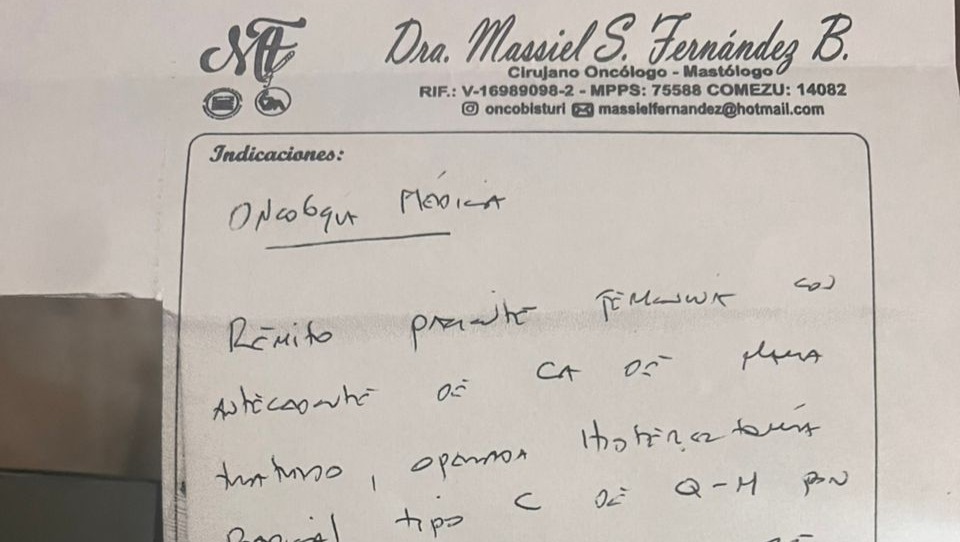 MF
Dra. Massiel S. Fernández B.
Cirujano Oncólogo - Mastólogo
RIF.: V-16989098-2 - MPPS: 75588 COMEZU: 14082
oncobisturi massielfernandez@hotmail.com
Indicaciones:
Oncología Médica
Remito paciente femenina con
antecedente de CA de mama
tratado, operada Histerectomía
Radical tipo C de Q-M por